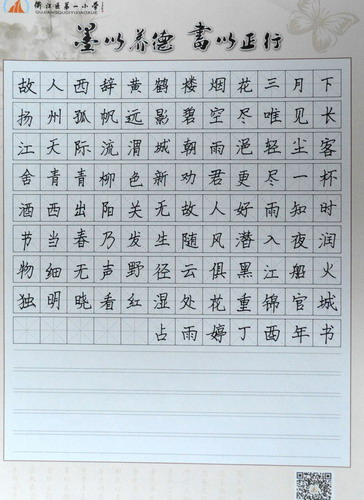 衢江区第一小学
QUJIANGQUDIYIXIAOXUE
墨以养德 书以正行
故人西辞黄鹤楼烟花三月下
扬州孤帆远影碧空尽唯见长
江天际流渭城朝雨浥轻尘客
舍青青柳色新劝君更尽一杯
酒西出阳关无故人好雨知时
节当春乃发生随风潜入夜润
物细无声野径云俱黑江船火
独明晓看红湿处花重锦官城
占雨婷丁酉年书